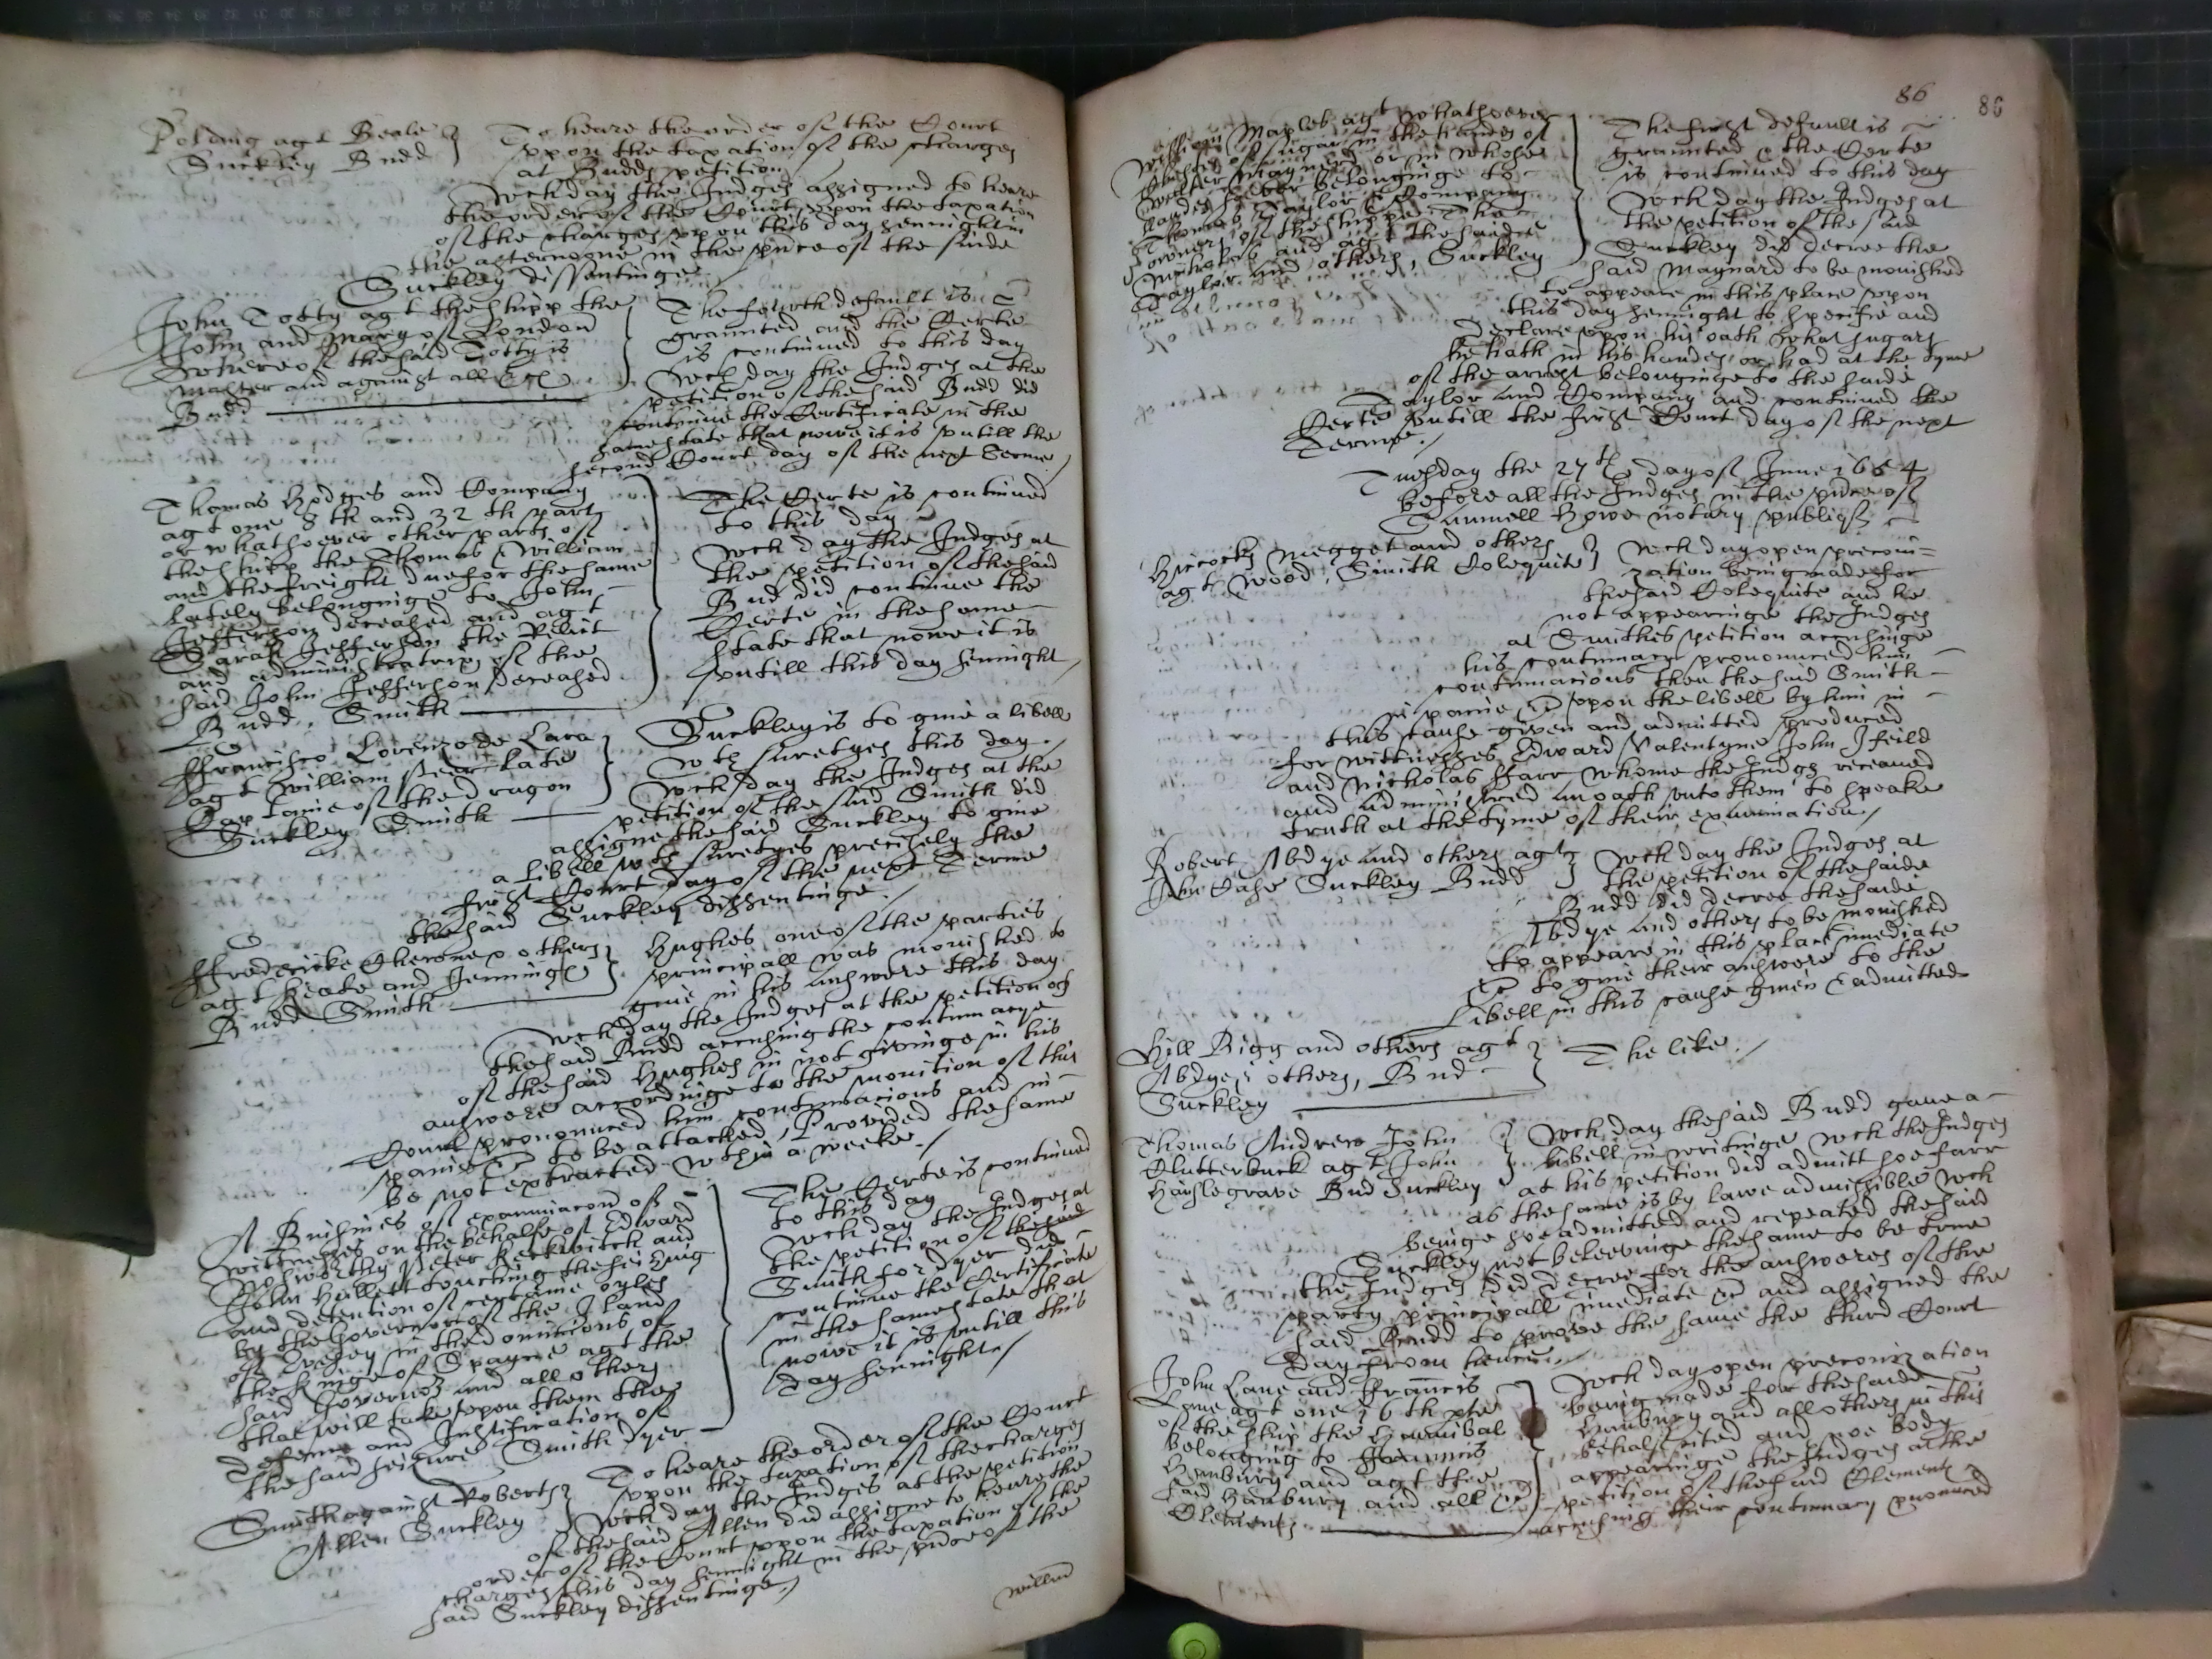 Polding agt Beale
Suckley Budd
To heare the order of the Court
upon the taxation of the charges
at Budds petition
wch day the Judges assigned to heare
the order of the Court upon the taxation
of the charges upon this day sennight in
the afternoone in the prsence of the saide
Suckley dissentinge
John Totty agt the shipp the
John and Mary of London
whereof the said Totty is
master and against all &c
Budd
The fourth default is
graunted and the Certe
is continued to this day
wch day the Judges at the
petition of the said Budd did
continue the Certificate in the
same state that nowe it is untill the
second Court day of the next terme
Thomas Hodges and Company
agt one 8th and 32th part
or whatsoever other parts of
the shipp the Thomas & William
and the freight due for the same
lately belonginge to John
Jefferson deceased and agt
Sarah Jefferson the Relict
and administratrix of the
said John Jefferson deceased
Budd, Smith
The Certe is continued
to this day
wch day the Judges at
the petition of the said
Bud did continue the
Certe in the same
state that nowe it is
untill this day sennight
ffrancisco Lorenzo de Lara
agt William late
Captaine of the dragon
Suckley Smith
Suckley is to give a libell
wth suretyes this day
wch day the Judges at the
petition of the said Smith did
assigne the said Suckley to give
a libell wth suretyes precisely the
first Court day of the next Terme
the said Suckley dissentinge
ffredericke others
agt Keate and Jennings
Budd Smith
Hughes one of the parties
principall was monished to
give in his answere this day
wch day the Judges at the petition of
the said Budd accusing the contumacye
of the said Hughes in not givinge in his
answere accordinge to the monition of this
Court pronounced him contumacious and in
paine &c to be attached, Provided the same
be not extracted wthin a weeke
A Busines of examinacon of
wittnesses on the behalfe of Edward
Peter and
John Hallett touching the seizing
and detention of certaine oyles
by the Governor of the Iland
of in the dominions of
the Kinge of Spayne agt the
said Governor and all others
that will take upon them the
defence and Justification of
the said seizure Smith dyer
The Certe is continued
to this day
wch day the Judges at
the petition of the said
Smith for dyer did
continue the Certificate
in the same state that
nowe it is untill this
day sennight
Smith against Roberts
Allen Suckley
To heare the order of the Court
upon the taxation of the charges
wch day the Judges at the petition
of the said Allen did assigne to heare the
order of the Court upon the taxation of the
charges this day sennight in the prsence of the
said Suckley dissentinge
willm
86
86
William Maples agt whatsoever
of sugar in the hands of
Maynard or in whose
handes soever belonginge to
Thomas Taylor & Company
owners of the shipp the
and agt the saide
Taylor and others, Suckley
The first default is
graunted & the Certe
is continued to this day
wch day the Judges at
the petition of the said
Suckley did decree the
said Maynard to be monished
to appeare in this place upon
this day sennight to specifie and
declare upon his oath what sugars
he hath in his handes or had at the tyme
of the arrest belonginge to the saide
Taylor and Company and continued the
Certe untill the first Court day of the next
Terme
Tuesday the 27th day of June 1654
before all the Judges in the prsence of
Samuell Howe notary publique
Hiccocks Megget and others
agt Wood, Smith Colequite
wch day open preconi=
zation being made for
the said Colequite and he
not appearinge the Judges
at Smithes petition accusinge
his contumacy pronounced him
contumacious then the said Smith
in paine &c upon the libell by him in
this cause given and admitted produced
for wittnesses Edward Valentyne John Ifeild
and Nicholas ffarr whome the Judges receaved
and administred an oath unto them to speake
truth at the tyme of their examination
Robert Abdye and others agt
John Case Suckley Budd
wch day the Judges at
the petition of the saide
Budd did decree the saide
Abdye and others to be monished
to appeare in this place imediate
&c to give their answere to the
Libell in this cause given & admitted
Hill Bigg and others agt
Abdye & others, Bud
Suckley
The like
Thomas Andrew John
Clutterbuck agt John
Haslegrave Bud Suckley
wch day the said Budd gave a
libell in writinge wch the Judges
at his petition did admitt soe farr
as the same is by lawe admissible wch
beinge soe admitted and repeated the said
Suckley not beleevinge the same to be true
the Judges did decree for the answeres of the
party principall imediate &c and assigned the
said Budd to prove the same the third Court
day from hence
John Lane and ffrancis
Lane agt one 16th pte
of the ship the Hannibal
belonging to ffrancis
Hanbury and agt the
said Hanbury and all &c
Clements
wch day open preconization
being made for the saide
Hanbury and all others in this
behalf cited and noe body
appearinge the Judges at the
petition of the said Clements
accusing their contumacy pnounced